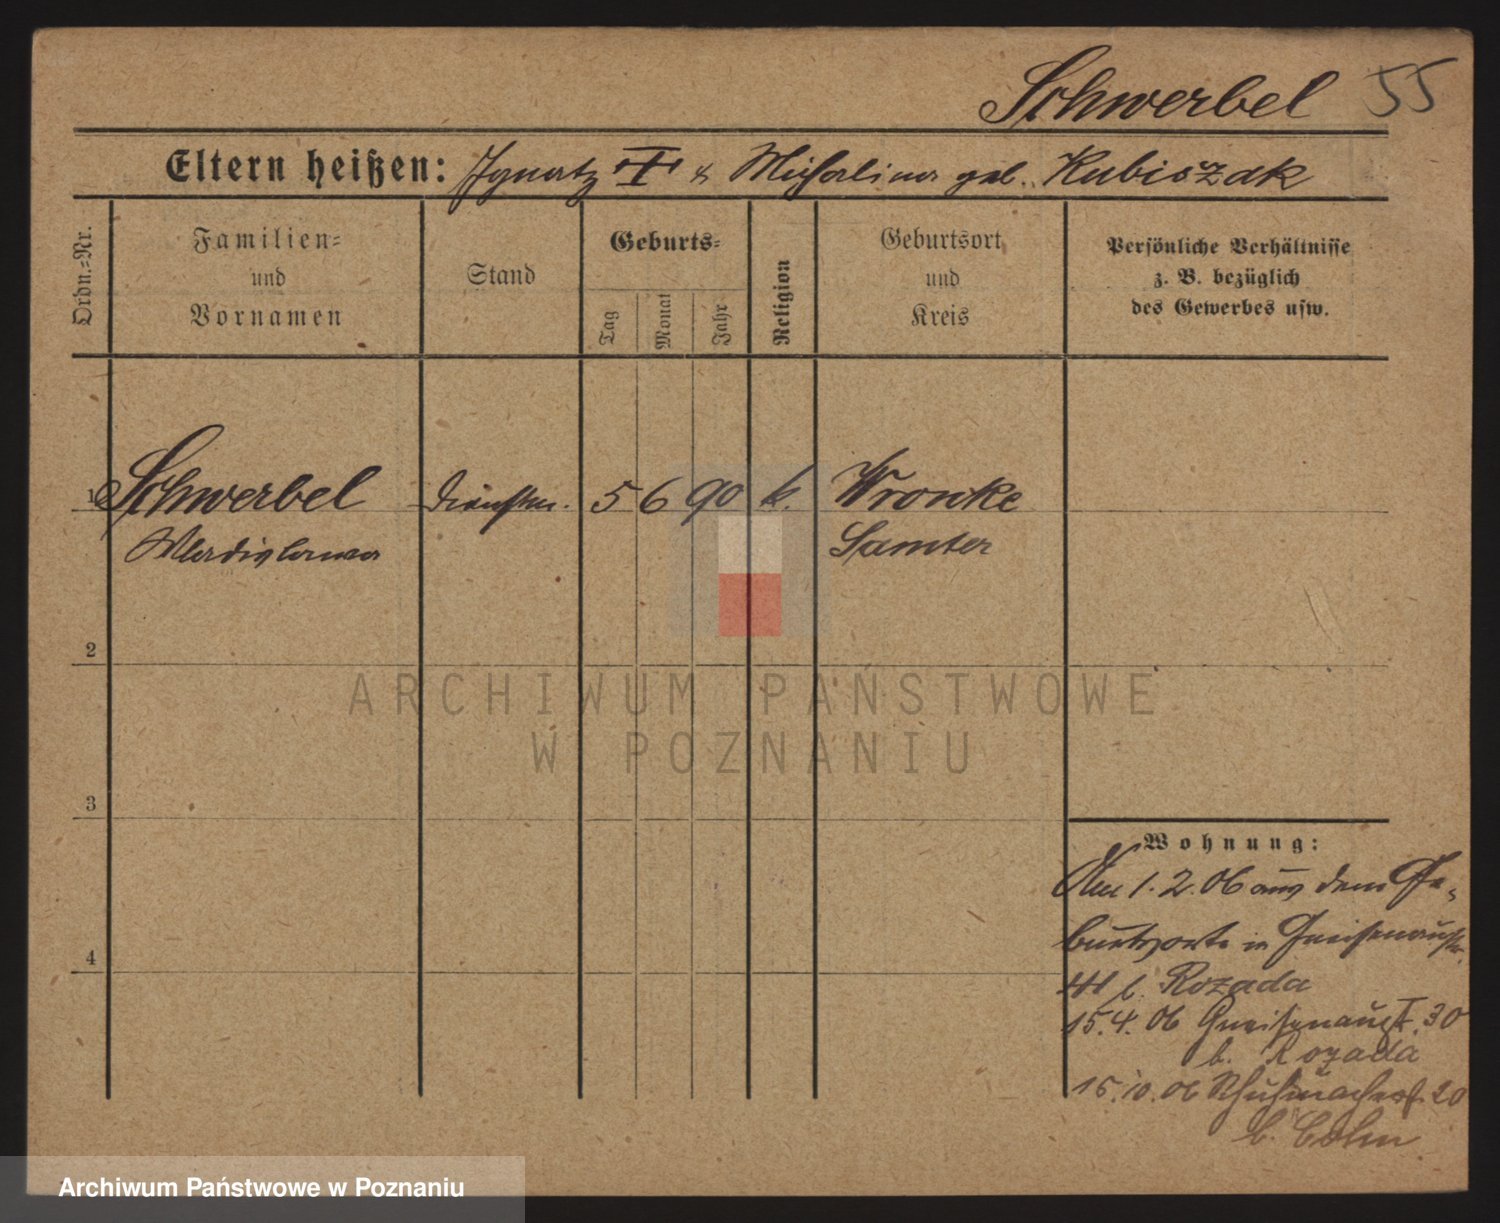 Schwerbel 55
Eltern heißen: Ignatz & Michalina geb. Kubiszak
Ordn.-Nr.
Familien-
und
Vornamen
Stand
Geburts-
Tag
Monat
Jahr
Religion
Geburtsort
und
Kreis
Persönliche Verhältnisse
z. B. bezüglich
des Gewerbes usw.
1 Schwerbel Dienstm. 5 6 90 k. Wronke
Wladislawa Samter
2
ARCHIWUM PAŃSTWOWE
W POZNANIU
3
4
Wohnung:
Am 1.2.06 aus dem Ge-
burtsorte in Gneisenaustr.
b. Rozada
15.4.06 Gneisenaustr. 30
b. Rozada
15.10.06 Schuhmacherstr. 20
b. Cohn
Archiwum Państwowe w Poznaniu